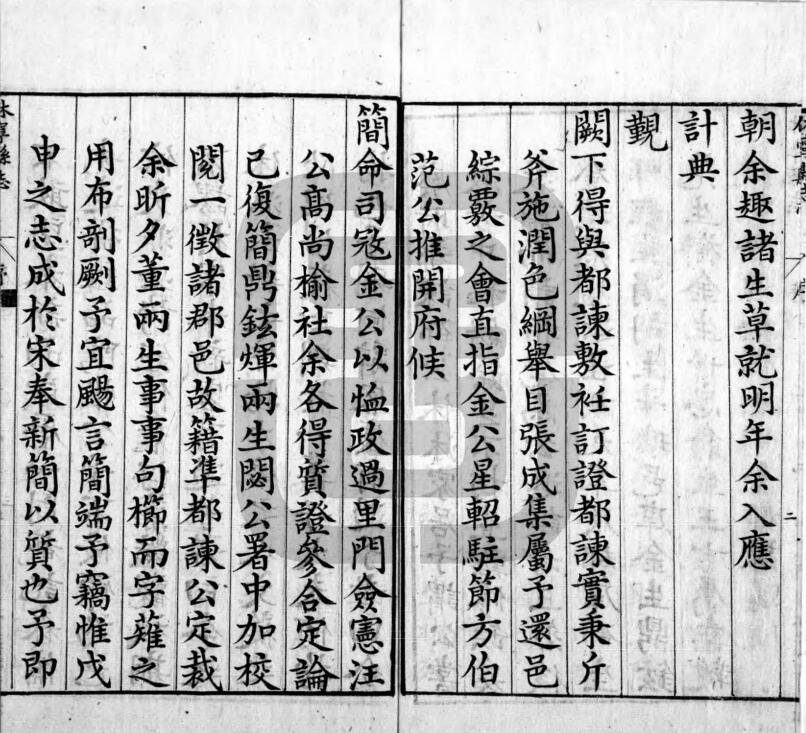 朝余趣諸生草就明年余入應
計典
覲
闕下得與都諫敷衽訂證都諫實秉斤
斧施潤色綱舉目張成集屬予還邑
綜覈之會直指金公星軺駐節方伯
范公推開府候
簡命司寇金公以恤政過里門僉憲汪
公高尚榆社余各得質證參合定論
已復簡鼎鉉煇兩生閟公署中加校
閱一徵諸郡邑故籍準都諫公定裁
余昕夕董兩生事事句櫛而字薙之
用布剞劂予宜颺言簡端予竊惟戊
申之志成於宋奉新簡以質也予即
休寧縣志
序
二